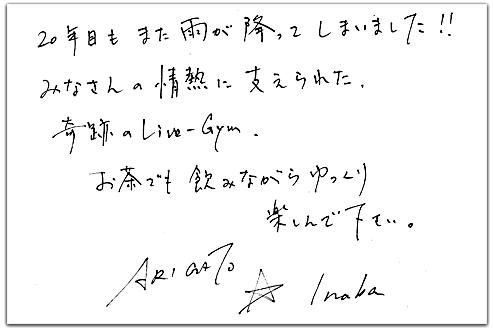 20年目もまた雨が降ってしまいました!!
みなさんの情熱に支えられた、
奇跡のLive-Gym.
お茶でも飲みながらゆっくり
楽しんで下さい。
ARIGATO
☆ Inaba